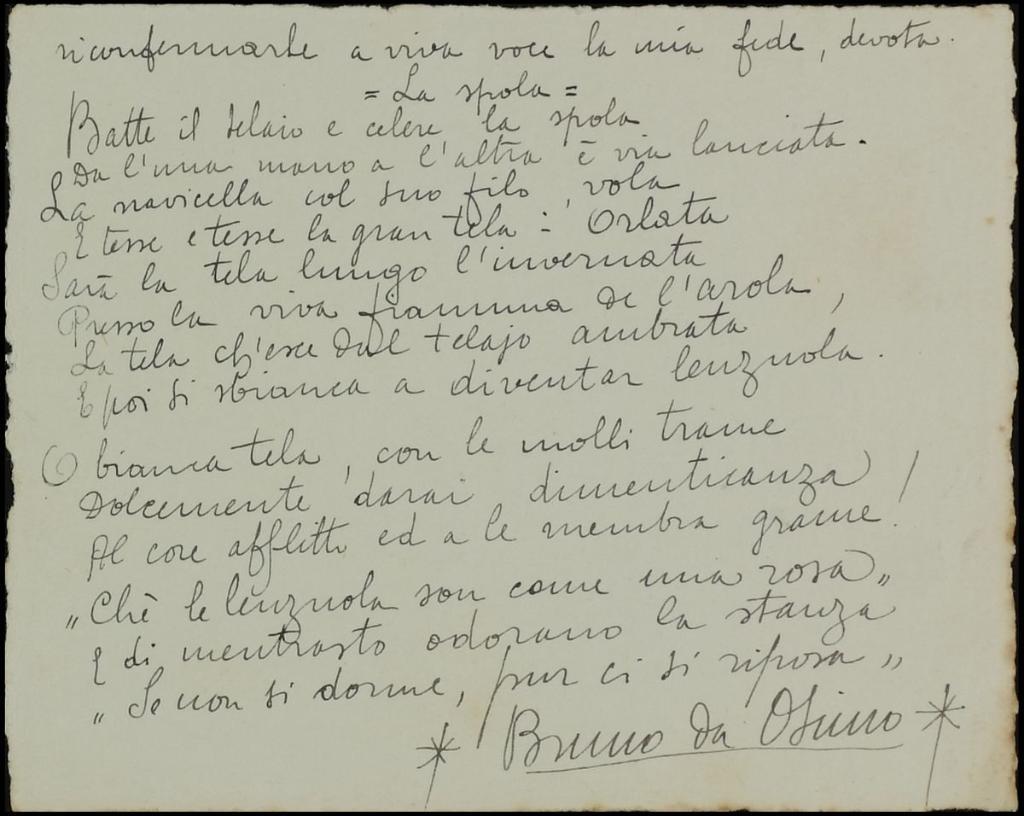 riconfermarle a viva voce la mia fede, devota.
= La spola =
Batte il telaio e celere la spola
Da l'una mano a l'altra è via lanciata.
La navicella col suo filo, vola
E tesse e tesse la gran tela: Orlata
Sarà la tela lungo l'invernata
Presso la viva fiamma de l'arola,
La tela ch'esce dal telajo ambrata
E poi si sbianca a diventar lenzuola.
O bianca tela, con le molli trame
Dolcemente darai dimenticanza
Al core afflitto ed a le membra grame!
„Chè le lenzuola son come una rosa„
E di mentrasto odorano la stanza
„Se non si dorme, pur ci si riposa„
Bruno da Osimo